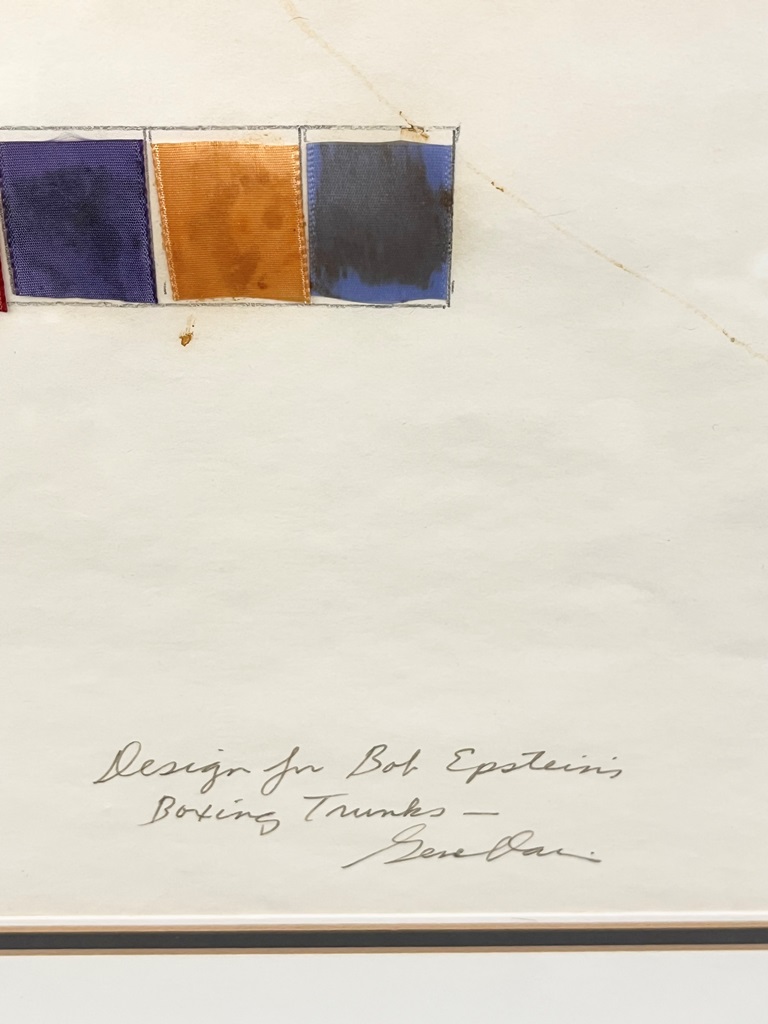 Design for Bob Epstein's
Boxing Trunks —
Gene Davis